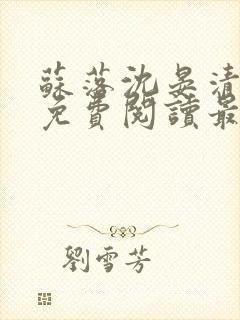 蘇落沈晏清
免費閱讀最
劉雪芳